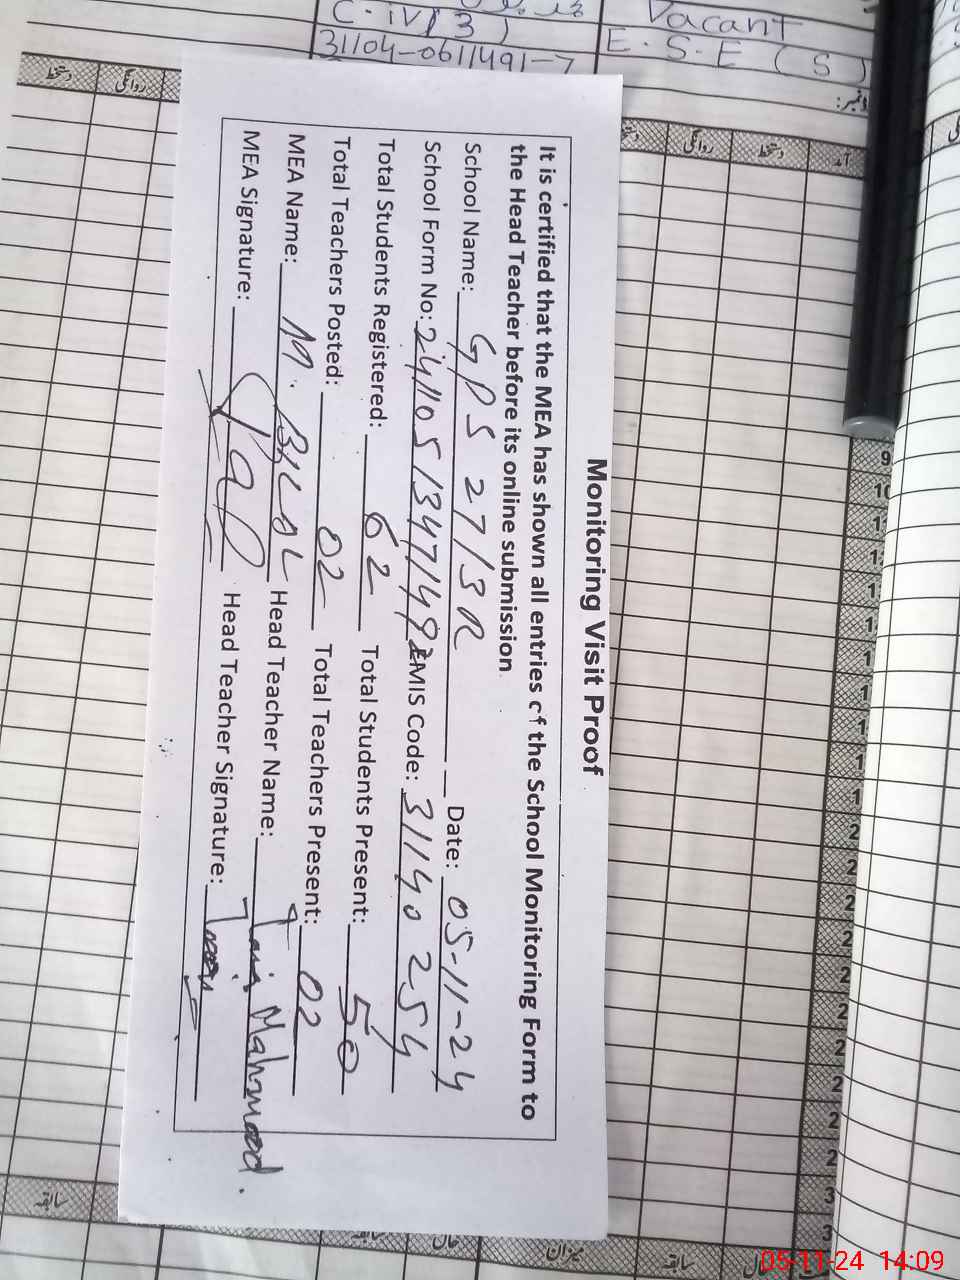 C-iv(3)
31104-0611491-7
Vacant
E.S.E (S)
دستخط
روانگی
روانگی
دستخط
آمد
Monitoring Visit Proof
It is certified that the MEA has shown all entries of the School Monitoring Form to
the Head Teacher before its online submission
School Name: GPS 27/3R Date: 05-11-24
School Form No: 24110513471492 EMIS Code: 31140254
Total Students Registered: 62 Total Students Present: 50
Total Teachers Posted: 02 Total Teachers Present: 02
MEA Name: M. BILAL Head Teacher Name: Mahmood.
MEA Signature: Head Teacher Signature:
سابقہ
میزان
سابقہ
حال
05-11-24 14:09